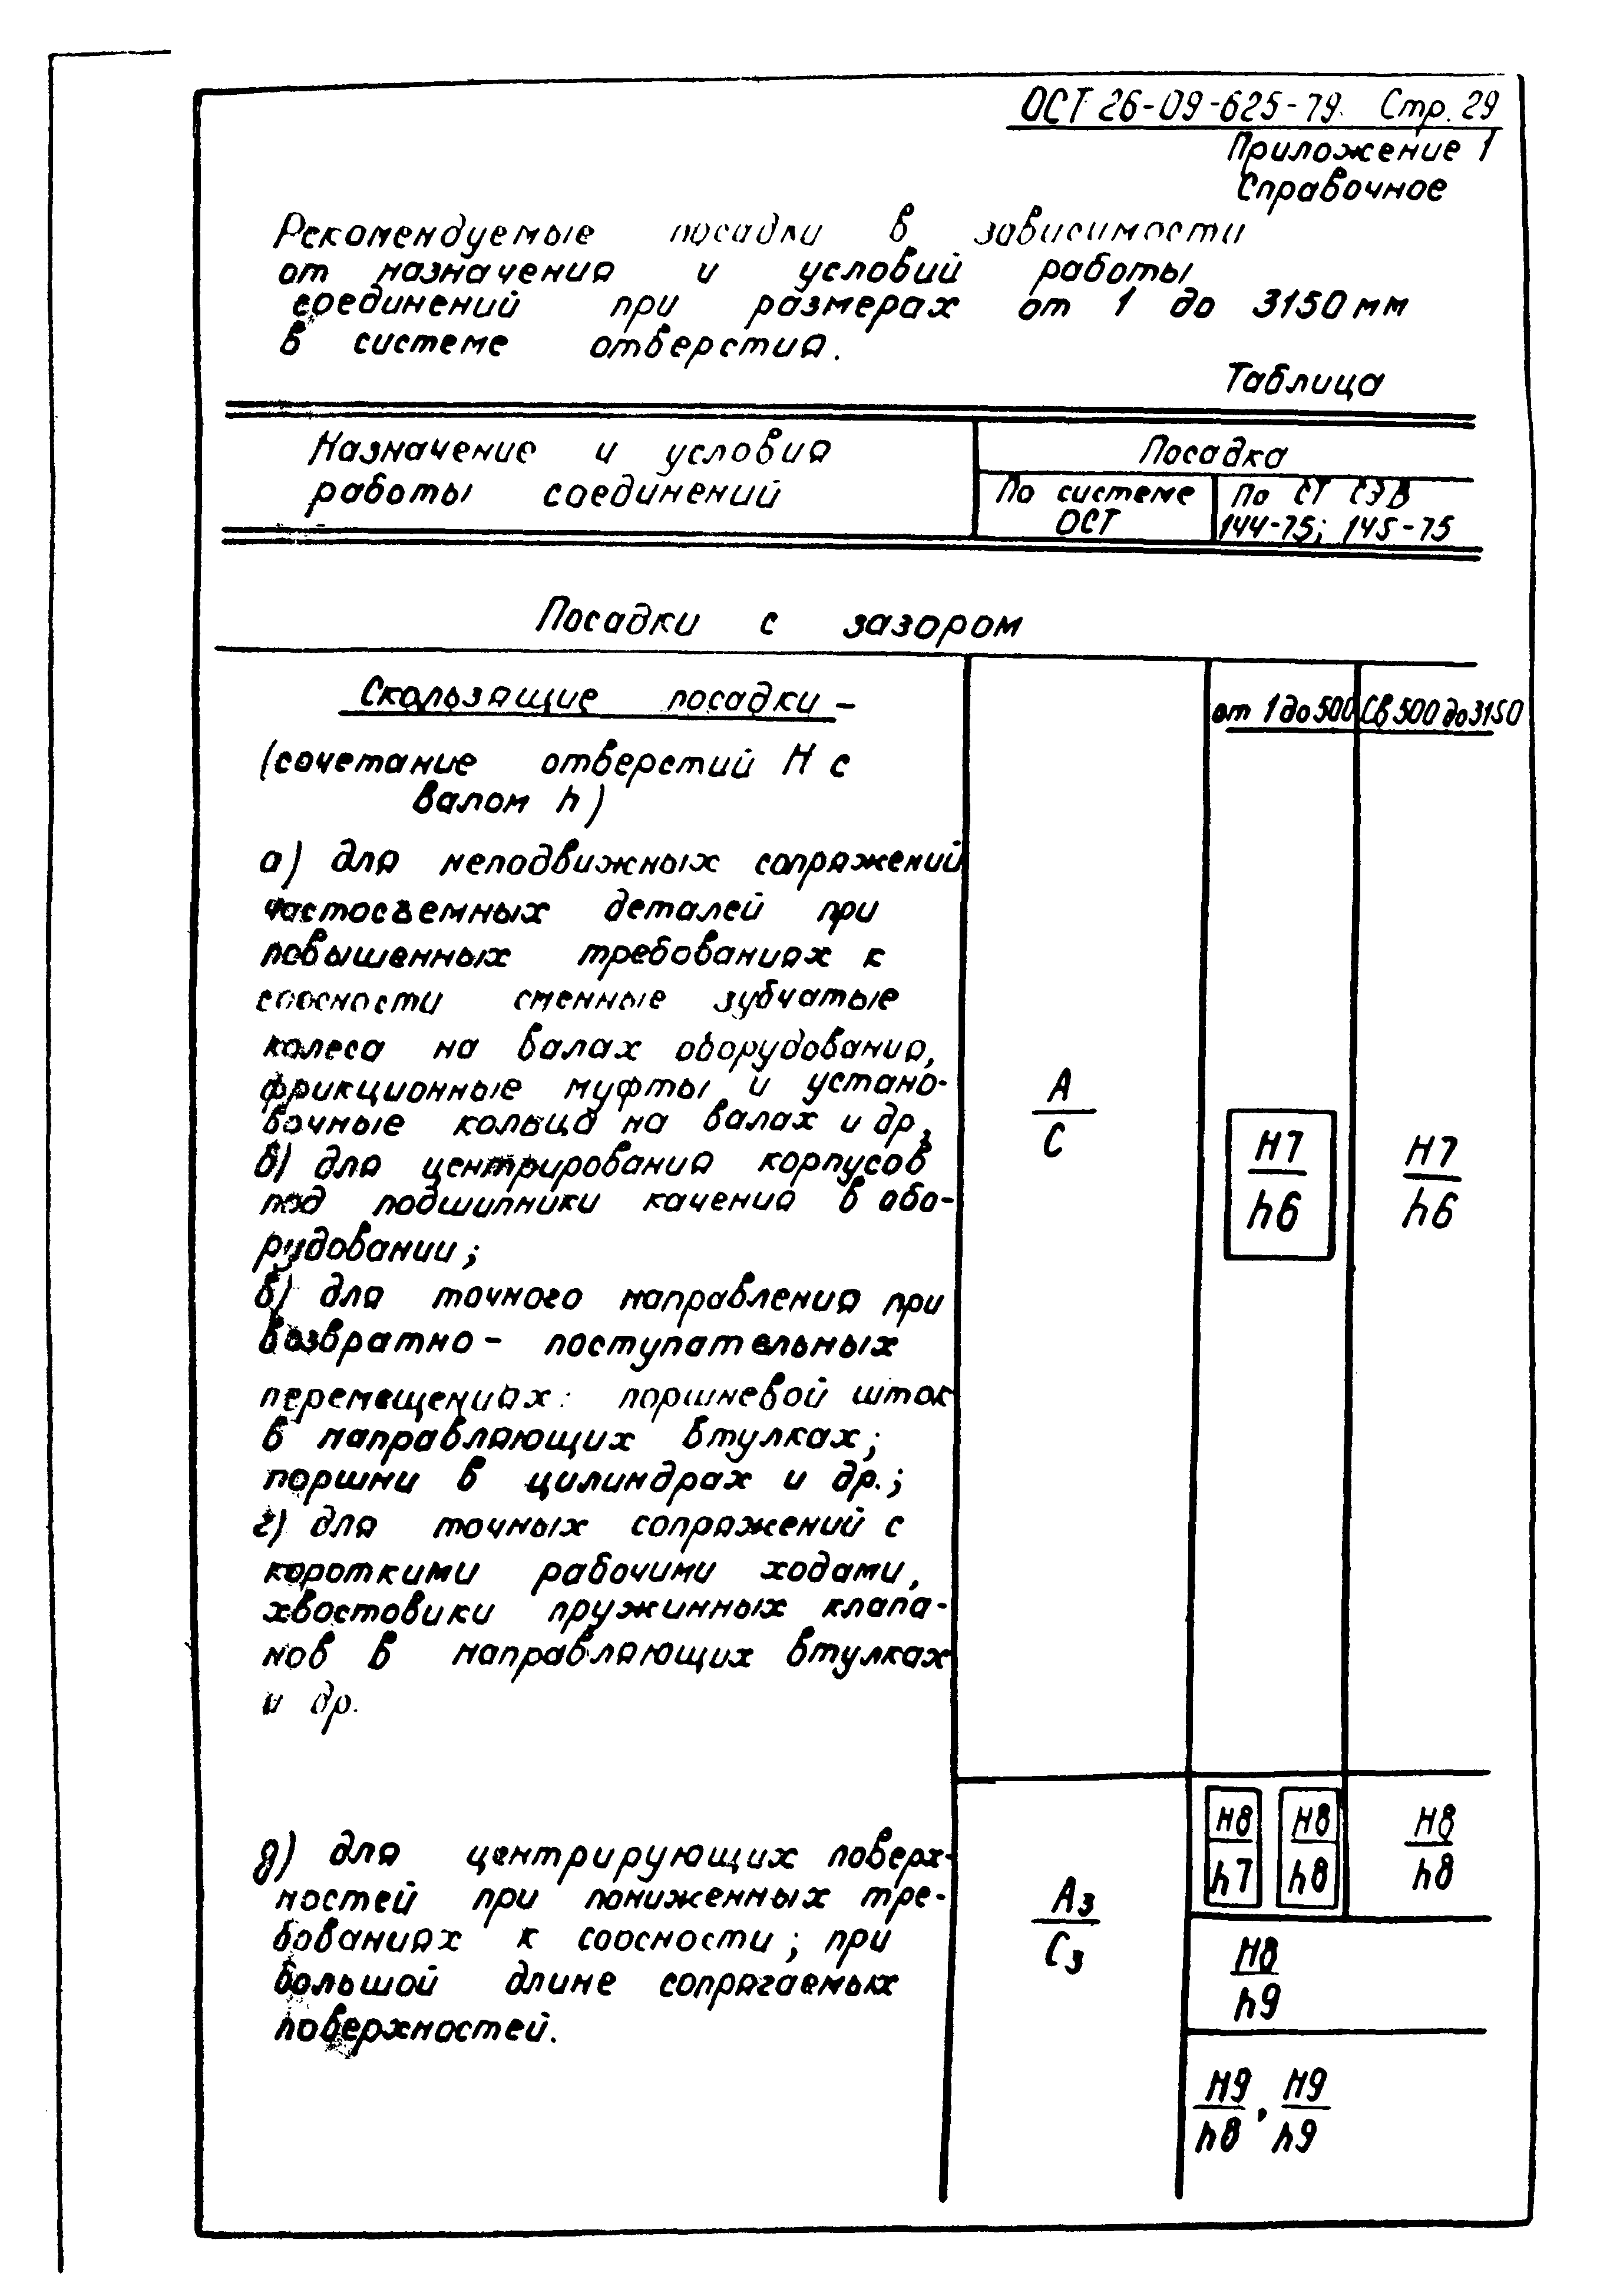 ОСТ 26-09-625-79. Стр. 29
Приложение 1
Справочное
Рекомендуемые посадки в зависимости
от назначения и условий работы
соединений при размерах от 1 до 3150 мм
в системе отверстия.
Таблица
Назначение и условия
работы соединений
Посадка
По системе
ОСТ
По СТ СЭВ
144-75; 145-75
Посадки с зазором
Скользящие посадки –
от 1 до 500
Св 500 до 3150
(сочетание отверстий H с
валом h)
а) для неподвижных сопряжений
частосъемных деталей при
повышенных требованиях к
соосности сменные зубчатые
колеса на валах оборудования,
фрикционные муфты и устано-
вочные кольца на валах и др,
б) для центрирования корпусов
под подшипники качения в обо-
рудовании;
в) для точного направления при
возвратно - поступательных
перемещениях: поршневой шток
в направляющих втулках;
поршни в цилиндрах и др.;
г) для точных сопряжений с
короткими рабочими ходами,
хвостовики пружинных клапа-
нов в направляющих втулках
и др.
А
С
H7
h6
H7
h6
д) для центрирующих поверх-
ностей при пониженных тре-
бованиях к соосности; при
большой длине сопрягаемых
поверхностей.
А3
С3
H8
h7
H8
h8
H8
h8
H8
h9
H9
h8
,
H9
h9